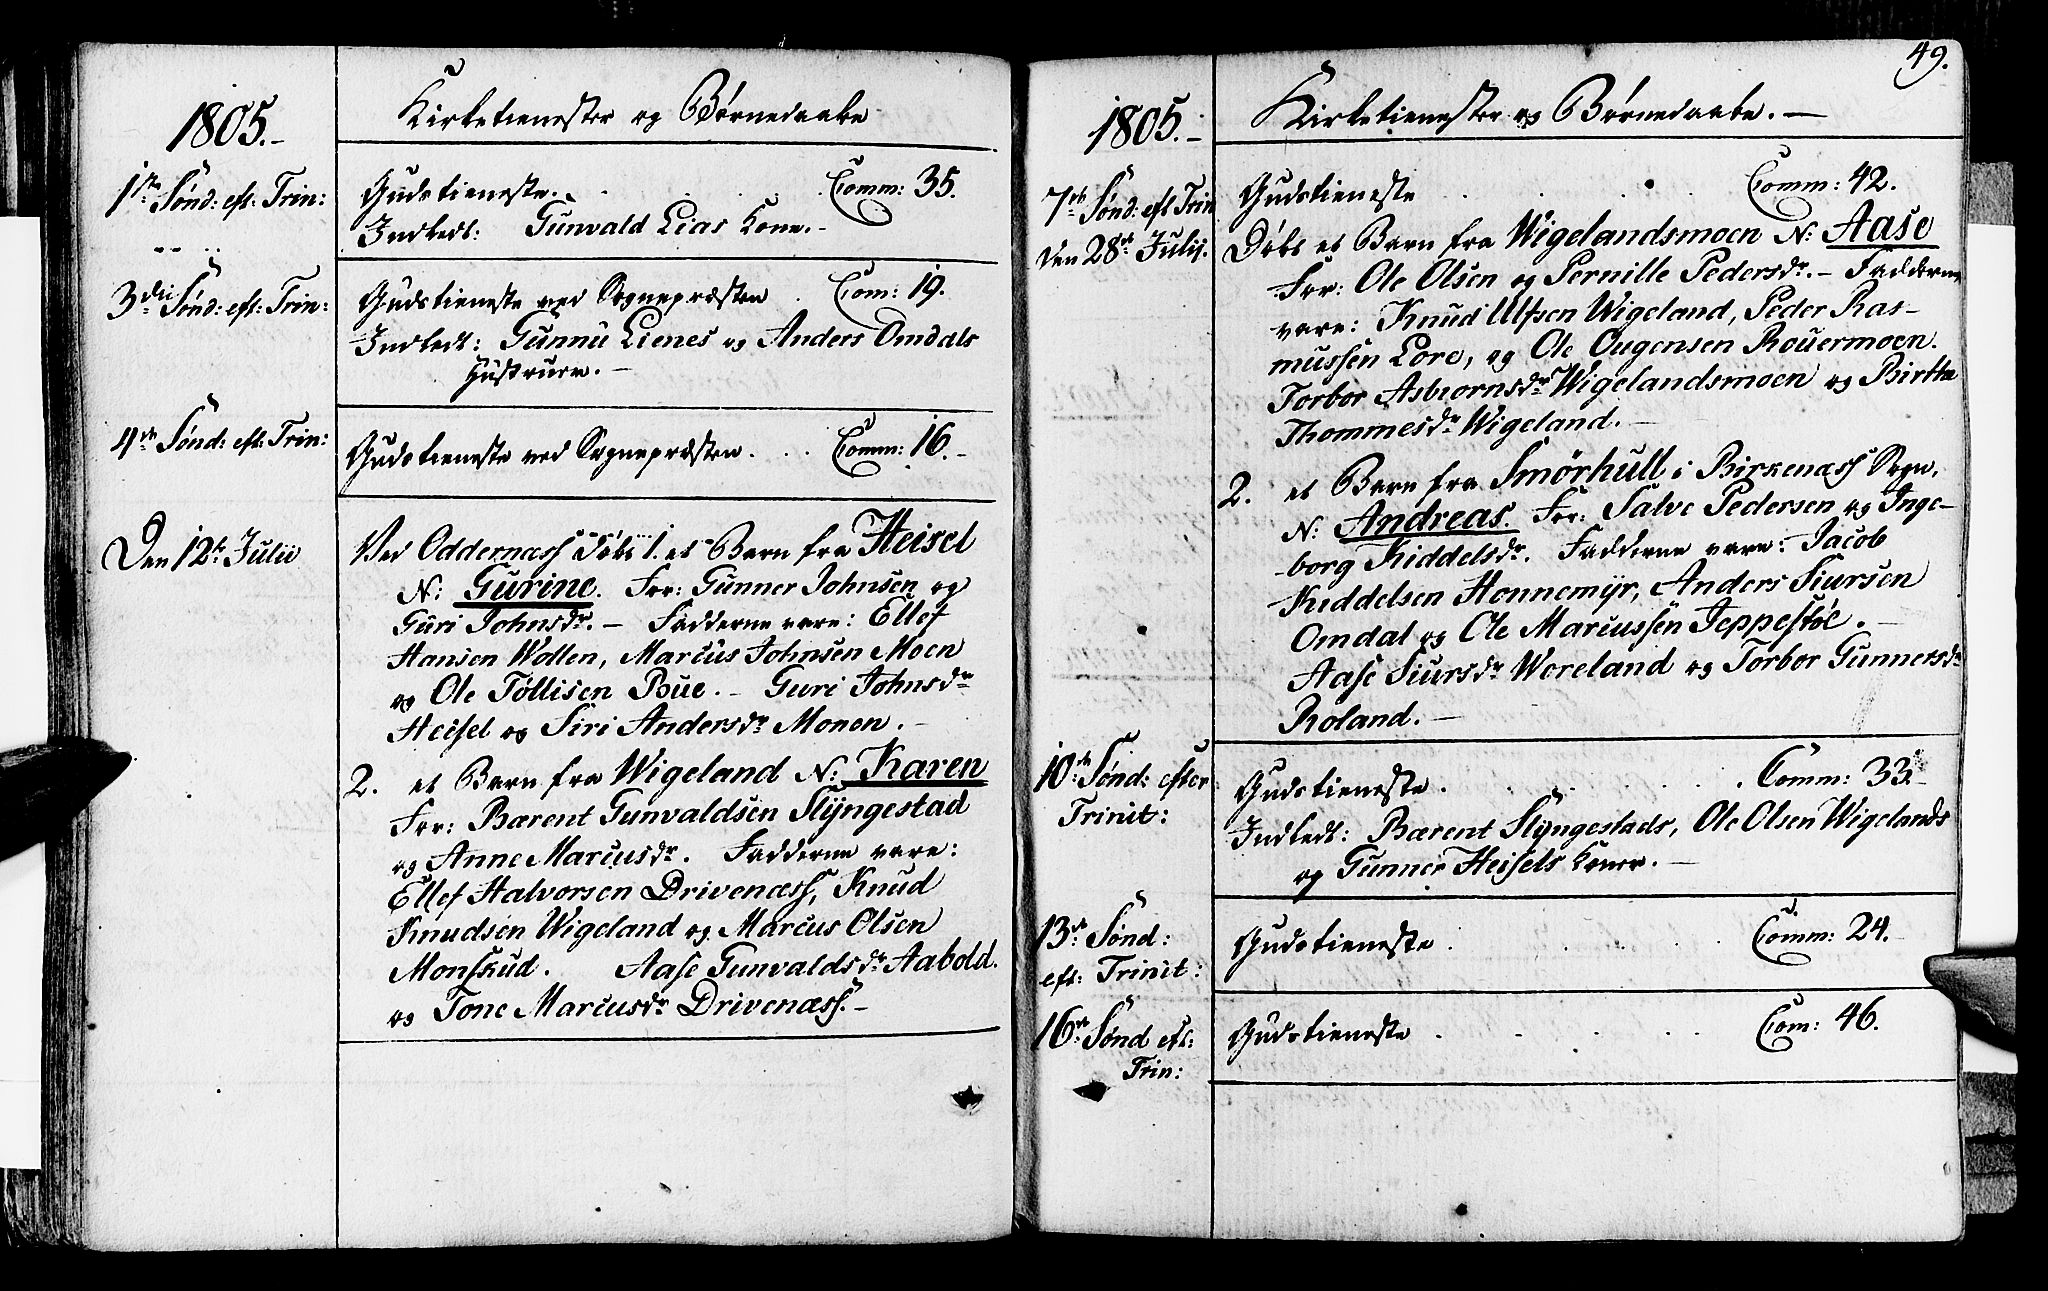 1805.-
Kirketienester og Børnedaabe
1ste Sønd: eft: Trin:
Gudstieneste. . . . Comm: 35.
Indledt: Gunvald Lias Kone.-
3die Sønd: eft: Trin:
Gudstieneste ved Sognepræsten . Com: 19.
Indledt: Gunnu Lienes og Anders Omdals
Hustruer.-
4de Sønd: eft: Trin:
Gudstieneste ved Sognepræsten. . . Comm: 16.-
Den 12te Julii
Ved Oddernæss døbt 1. et Barn fra Heisel
N: Gurine. For: Gunner Johnsen og
Guri Johnsdr.- Fadderne vare: Ellef
Hansen Wollen, Marcus Johnsen Moen
og Ole Tøllisen Bue.- Guri Johnsdr
Heisel og Siri Andersdr Monen.-
2. et Barn fra Wigeland N: Karen
For: Bærent Gunvaldsen Slÿngestad
og Anne Marcusdr. Fadderne vare:
Ellef Halvorsen Drivenæss, Knud
Knudsen Wigeland og Marcus Olsen
Monskud. Aase Gunvaldsdr Aabold.
og Tone Marcusdr Drivenæss.-
49.
1805.-
Kirketienester og Børnedaabe.-
7de Sønd: eft Trin
den 28de Julij.
Gudstieneste . . . Comm: 42.
Døbt et Barn fra Wigelandsmoen N: Aase
For: Ole Olsen og Pernille Pedersdr.- Fadderne
vare: Knud Ulfsen Wigeland, Peder Ras-
mussen Lore, og Ole Ougensen Rouermoen.
Torbor Asbiornsdr Wigelandsmoen og Birthe
Thommesdr Wigeland.-
2. et Barn fra Smørhull i Birkenæss Sogn,
N: Andreas. For: Salve Pedersen og Inge-
borg Kiddelsdr. Fadderne vare: Jacob
Kiddelsen Honnemÿr, Anders Siursen
Omdal og Ole Marcussen Jeppestøe.-
Aase Siursdr Woreland og Torbor Gunnersdr
Roland.-
10de Sønd: efter
Trinit:
Gudstieneste. . . . Comm: 33.-
Indledt: Bærent Slÿngestads, Ole Olsen Wigelands
og Gunner Heisels Koner.-
13de Sønd:
eft: Trinit:
Gudstieneste . . . Comm: 24.
16de Sønd eft:
Trin:
Gudstieneste . . . . Com: 46.